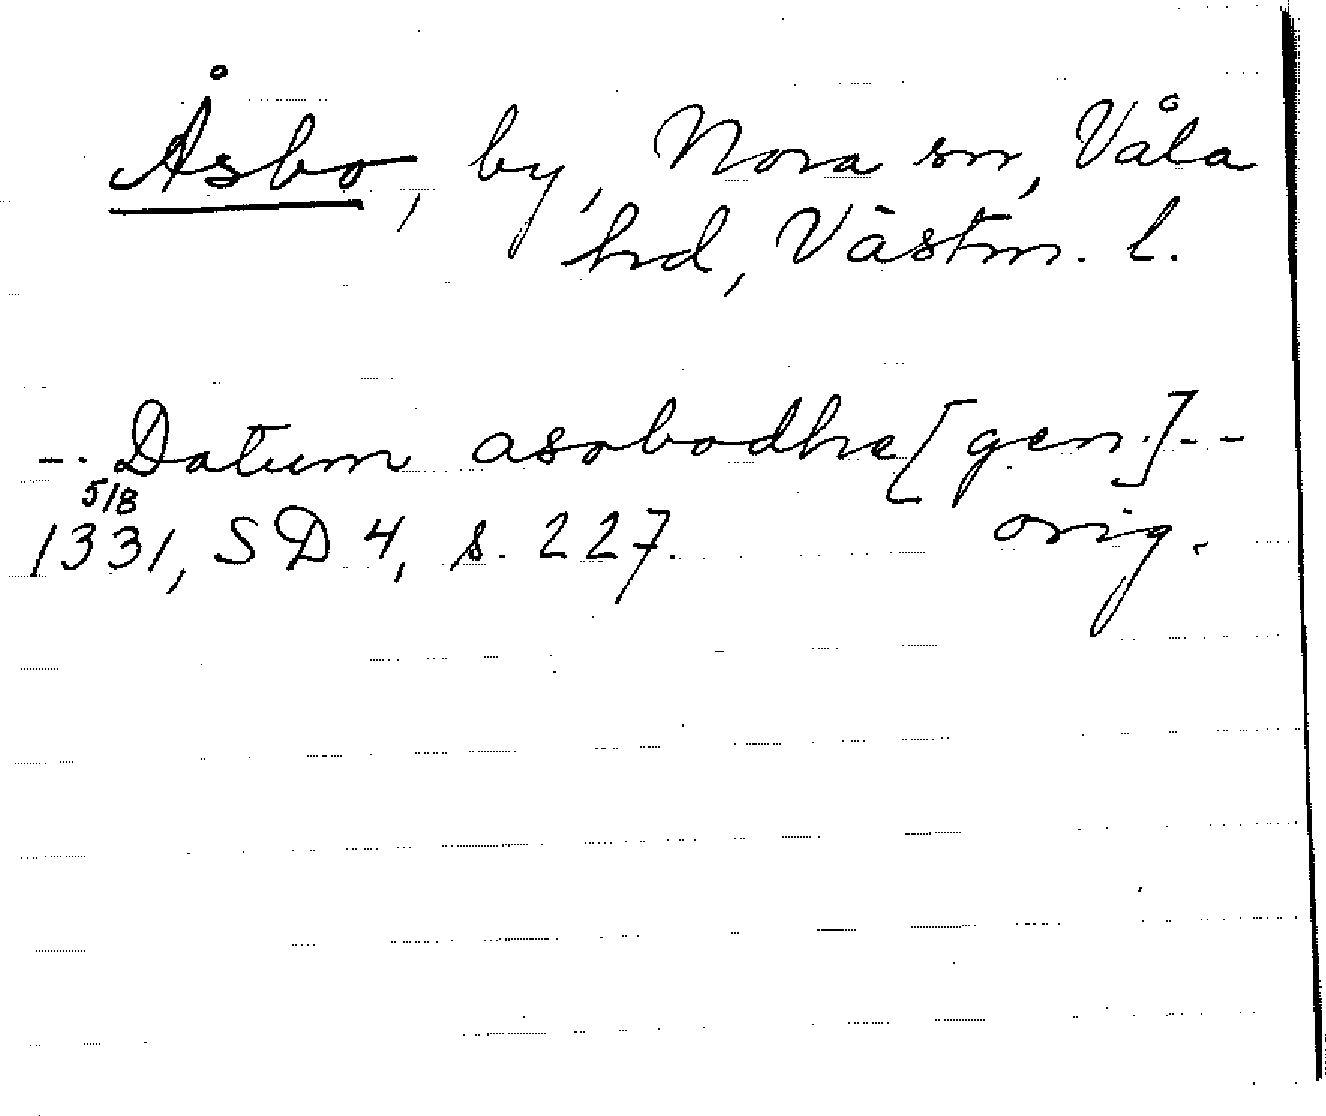 Åsbo, by, Nora sn, Våla
hrd, Västm. l.
-- Datum asobodhe [gen.] --
5/8
1331, SD 4, s. 227. orig.